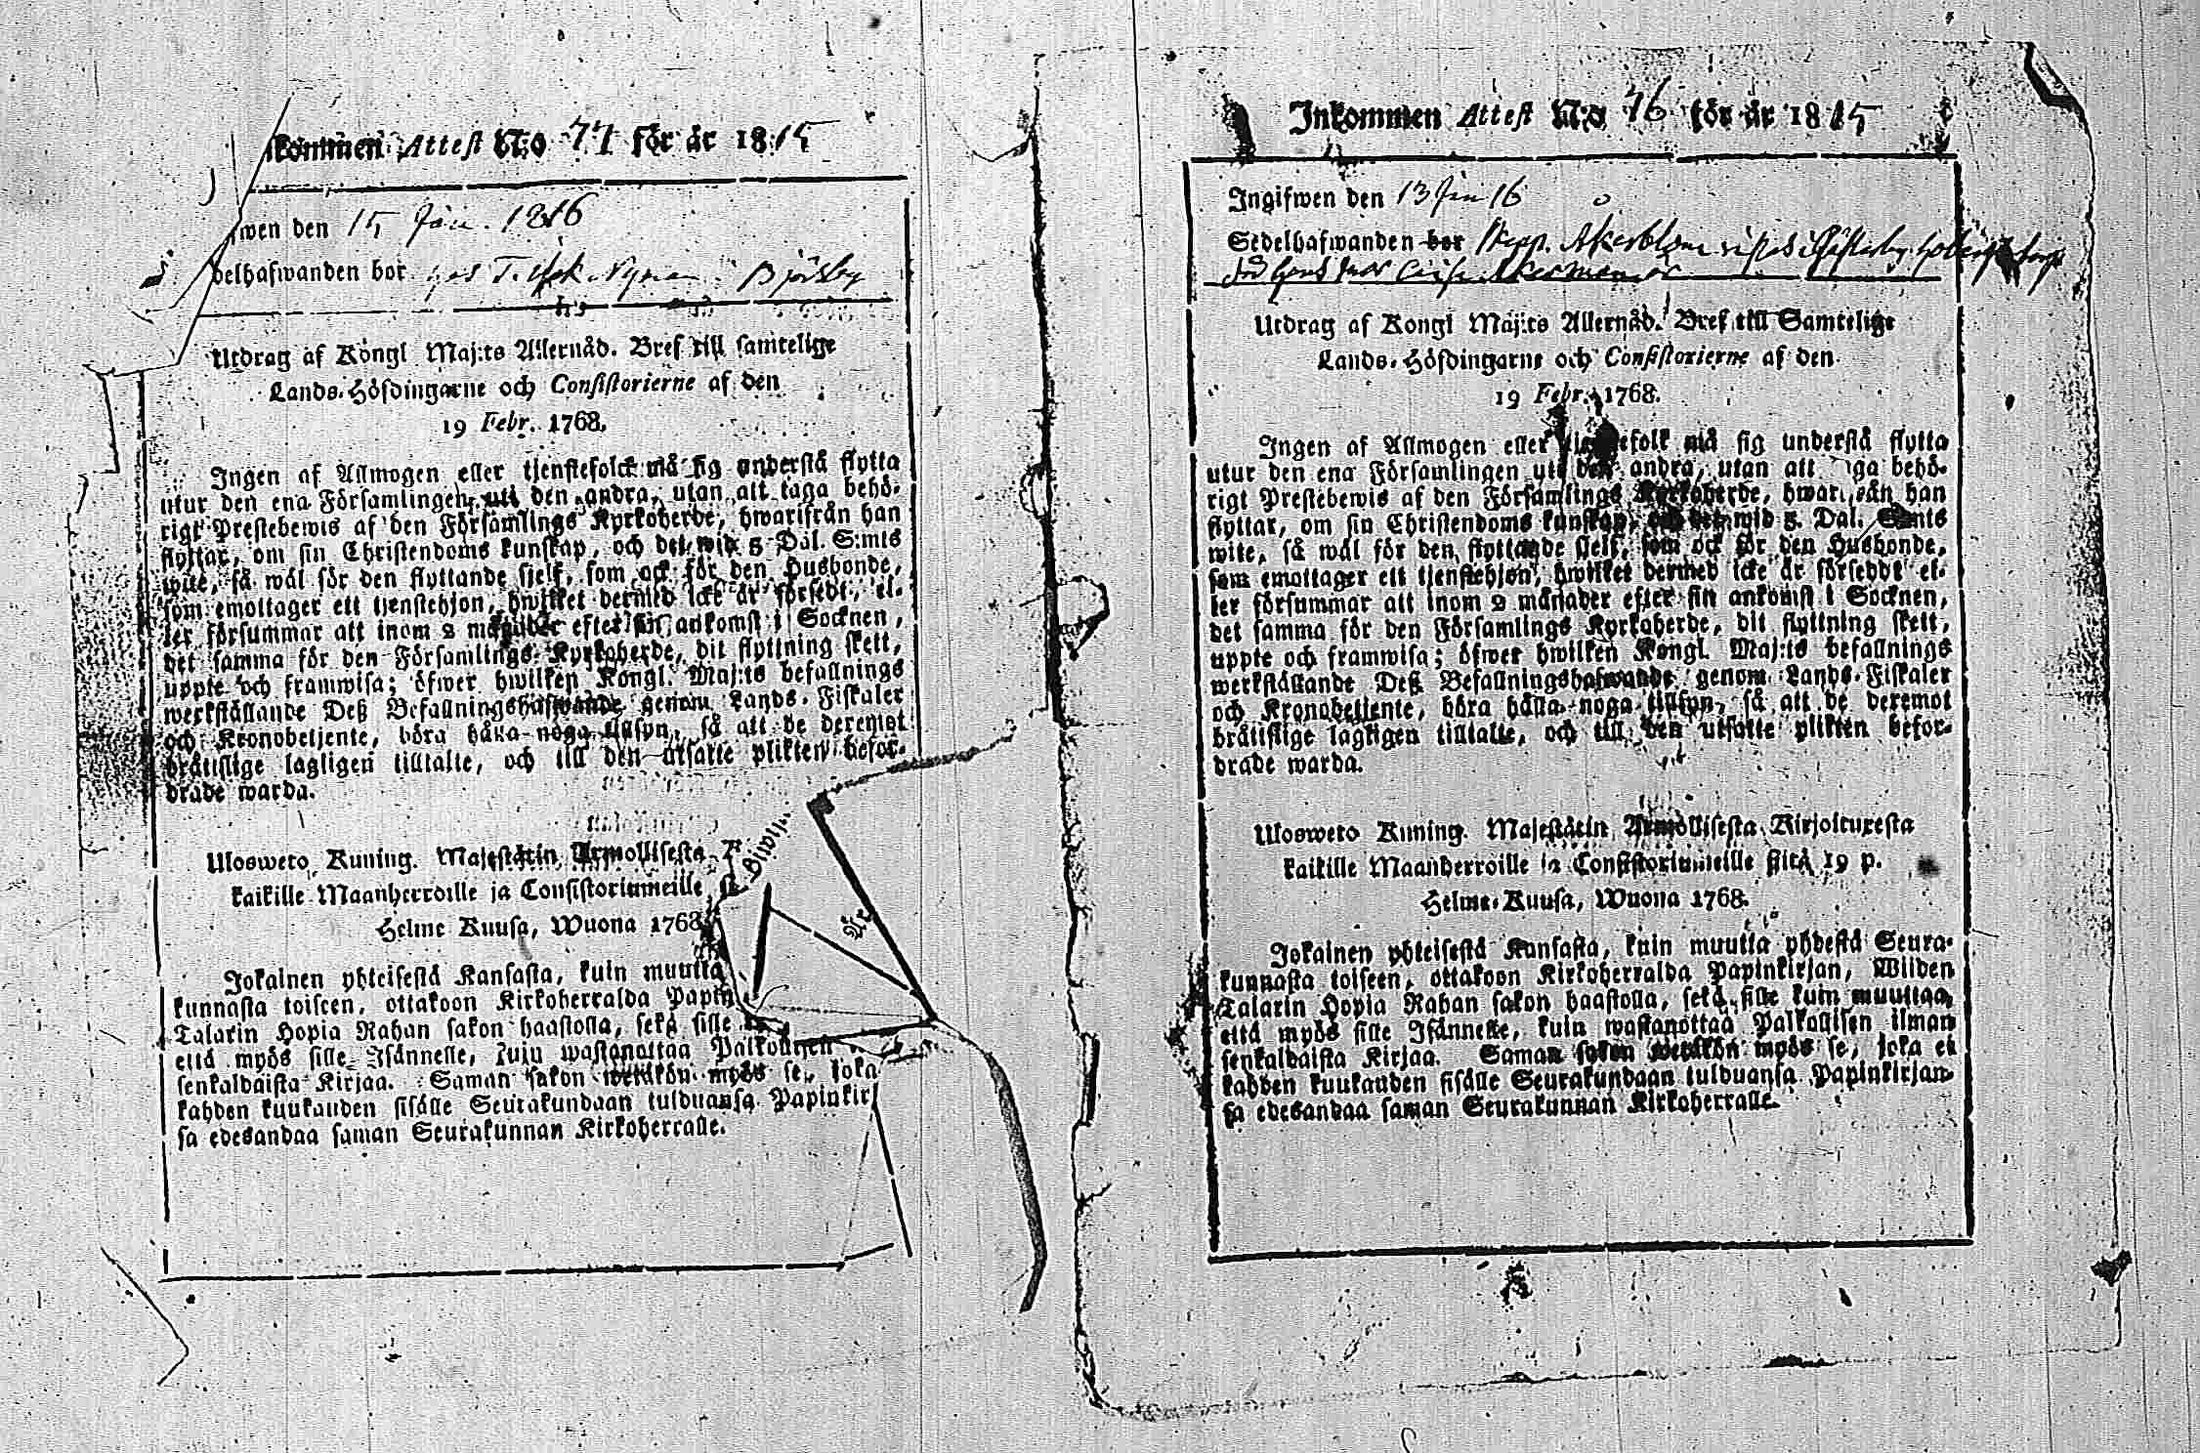 kommen Attest N:o 77 för år 1815
wen den 15 Jan. 1816
delhafwanden bor hos T. Nyman i Björsby
Utdrag af Kongl Maj:ts Allernåd. Bref till samtelige
Lands-Höfdingarne och Consistorierne af den
19 Febr. 1768.
Ingen af Allmogen eller tjenstefolck må sig understå flytta
utur den ena Församlingen uti den andra, utan att taga behö-
rigt Prestebewis af den Församlings Kyrkoherde, hwarifrån han
flyttar, om sin Christendoms kunskap, och det wid 5 Dal. S:mts
wite, så wäl för den flyttande sjelf, som ock för den Husbonde,
som emottager ett tjenstehjon, hwilket dermed icke är försedt, el-
ler försummar att inom 2 månader efter sin ankomst i Socknen,
det samma för den Församlings Kyrkoherde, dit flyttning skett,
uppte och framwisa; öfwer hwilken Kongl. Maj:ts befallnings
werkställande Deß Befallningshafwande genom Lands-Fiskaler
och Kronobetjente, böra hålla noga tillsyn, så att de deremot
bråttslige lagligen tilltalte, och till den utsatte plikten befor-
drade warda.
Ulosweto Kuning. Majestätin Armollisesta
kaikille Maanherroille ja Consistoriumeille
Helme Kuusa, Wuona 1768
Jokainen yhteisestä Kansasta, kuin muutta
kunnasta toiseen, ottakoon Kirkoherralda Papin
Talarin Hopia Rahan sakon haastolla, sekä sille
että myös sille Isännelle, kuin wastanottaa Palkollisen
senkaldaista Kirjaa. Saman sakon wetäkön myös se, joka
kahden kuukauden sisälle Seurakundaan tulduansa Papinkir
sa edesandaa saman Seurakunnan Kirkoherralle.
Inkommen Attest N:o 76 för år 1815
Ingifwen den 13 Jan 16
Sedelhafwanden bor Skepp. Åkerblom
Utdrag af Kongl Maj:ts Allernåd. Bref till Samtelige
Lands-Höfdingarne och Consistorierne af den
19 Febr. 1768.
Ingen af Allmogen eller tjenstefolk må sig understå flytta
utur den ena Församlingen uti den andra, utan att taga behö-
rigt Prestebewis af den Församlings Kyrkoherde, hwarifrån han
flyttar, om sin Christendoms kunskap, och det wid 5. Dal. S:mts
wite, så wäl för den flyttande sjelf, som ock för den Husbonde,
som emottager ett tjenstehjon, hwilket dermed icke är försedt, el-
ler försummar att inom 2 månader efter sin ankomst i Socknen,
det samma för den Församlings Kyrkoherde, dit flyttning skett,
uppte och framwisa; öfwer hwilken Kongl. Maj:ts befallnings
werkställande Deß Befallningshafwande genom Lands-Fiskaler
och Kronobetjente, böra hålla noga tillsyn, så att de deremot
bråttslige lagligen tilltalte, och till den utsatte plikten befor-
drade warda.
Ulosweto Kuning. Majestätin Armollisesta Kirjoituxesta
kaikille Maanherroille ja Consistoriumeille siitä 19 p.
Helme-Kuusa, Wuona 1768.
Jokainen yhteisestä Kansasta, kuin muutta yhdestä Seura-
kunnasta toiseen, ottakoon Kirkoherralda Papinkirjan, Wiiden
Talarin Hopia Rahan sakon haastolla, sekä sille kuin muuttaa,
että myös sille Isännelle, kuin wastanottaa Palkollisen ilman
senkaldaista Kirjaa. Saman sakon wetäkön myös se, joka ei
kahden kuukauden sisälle Seurakundaan tulduansa Papinkirjan-
sa edesandaa saman Seurakunnan Kirkoherralle.